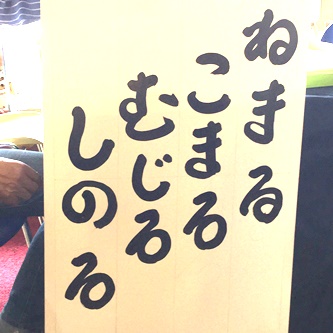 ねまる
こまる
むじる
しのる